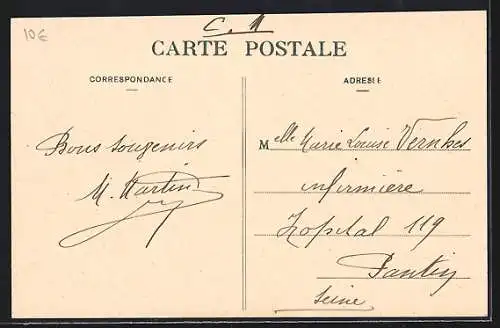 10€
C. M
CARTE POSTALE
CORRESPONDANCE
ADRESSE
Bons souvenirs
M. Martin
Melle Marie Louise Vernhes
infirmière
Hopital 119
Pantin
Seine